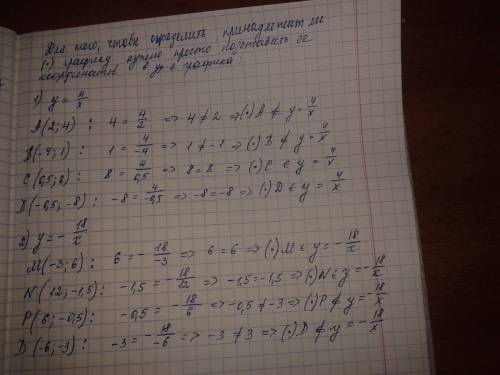 Для того, чтобы определить принадлежит ли
(•) графику нужно просто подставить её
координаты в ур-е графика:
1) y = 4/x
A(2; 4) : 4 = 4/2 => 4 ≠ 2 => (•) A ∉ y = 4/x
B(-4; 1) : 1 = 4/-4 => 1 ≠ -1 => (•) B ∉ y = 4/x
C(0,5; 8) : 8 = 4/0,5 => 8 = 8 => (•) C ∈ y = 4/x
D(-0,5; -8) : -8 = 4/-0,5 => -8 = -8 => (•) D ∈ y = 4/x
2) y = - 18/x
M(-3; 6) : 6 = - 18/-3 => 6 = 6 => (•) M ∈ y = - 18/x
N(12; -1,5) : -1,5 = - 18/12 => -1,5 = -1,5 => (•) N ∈ y = - 18/x
P(6; -0,5) : -0,5 = - 18/6 => -0,5 ≠ -3 => (•) P ∉ y = - 18/x
D(-6; -3) : -3 = - 18/-6 => -3 ≠ 3 => (•) D ∉ y = - 18/x